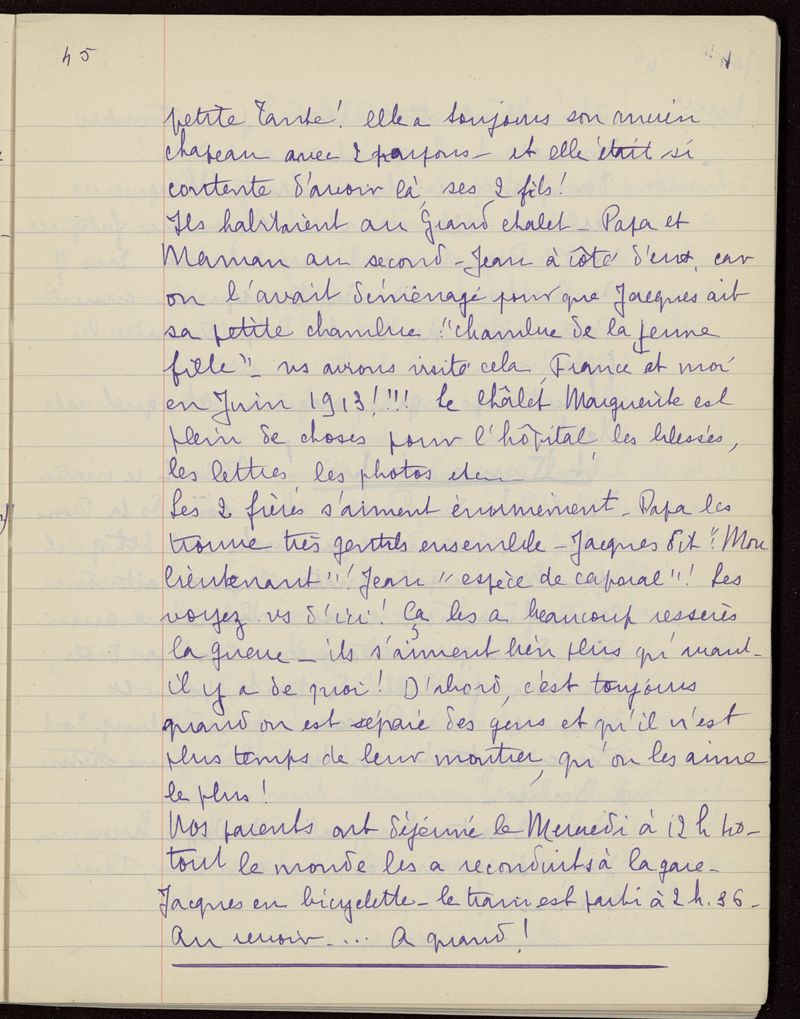 45
petite Tante! elle a toujours son ancien
chapeau avec 2 pompons - et elle était si
contente d'avoir là, ses 2 fils!
Ils habitaient au Grand chalet - Papa et
Maman au second - Jean à côté d'eux, car
on l'avait déménagé pour que Jacques ait
sa petite chambre "chambre de la jeune
fille" - ns avions visité cela, France et moi
en Juin 1913!!!! Le Châlet Marguerite est
plein de choses pour l'hôpital, les blessés,
les lettres, les photos etc...
Les 2 frères s'aiment énormément - Papa les
trouve très gentils ensemble - Jacques dit "Mon
lieutenant"! Jean "espèce de caporal"! Les
voyez vs d'ici! Ça les a beaucoup resserés
la guerre - ils s'aiment bien plus qu'avant -
il y a de quoi! D'abord, c'est toujours
quand on est séparé des gens et qu'il n'est
plus temps de leur montrer, qu'on les aime
le plus!
Nos parents ont déjeuné le Mercredi à 12 h 40 -
tout le monde les a reconduits à la gare -
Jacques en bicyclette - le train est parti à 2 h. 36 -
Au revoir - ... A quand!